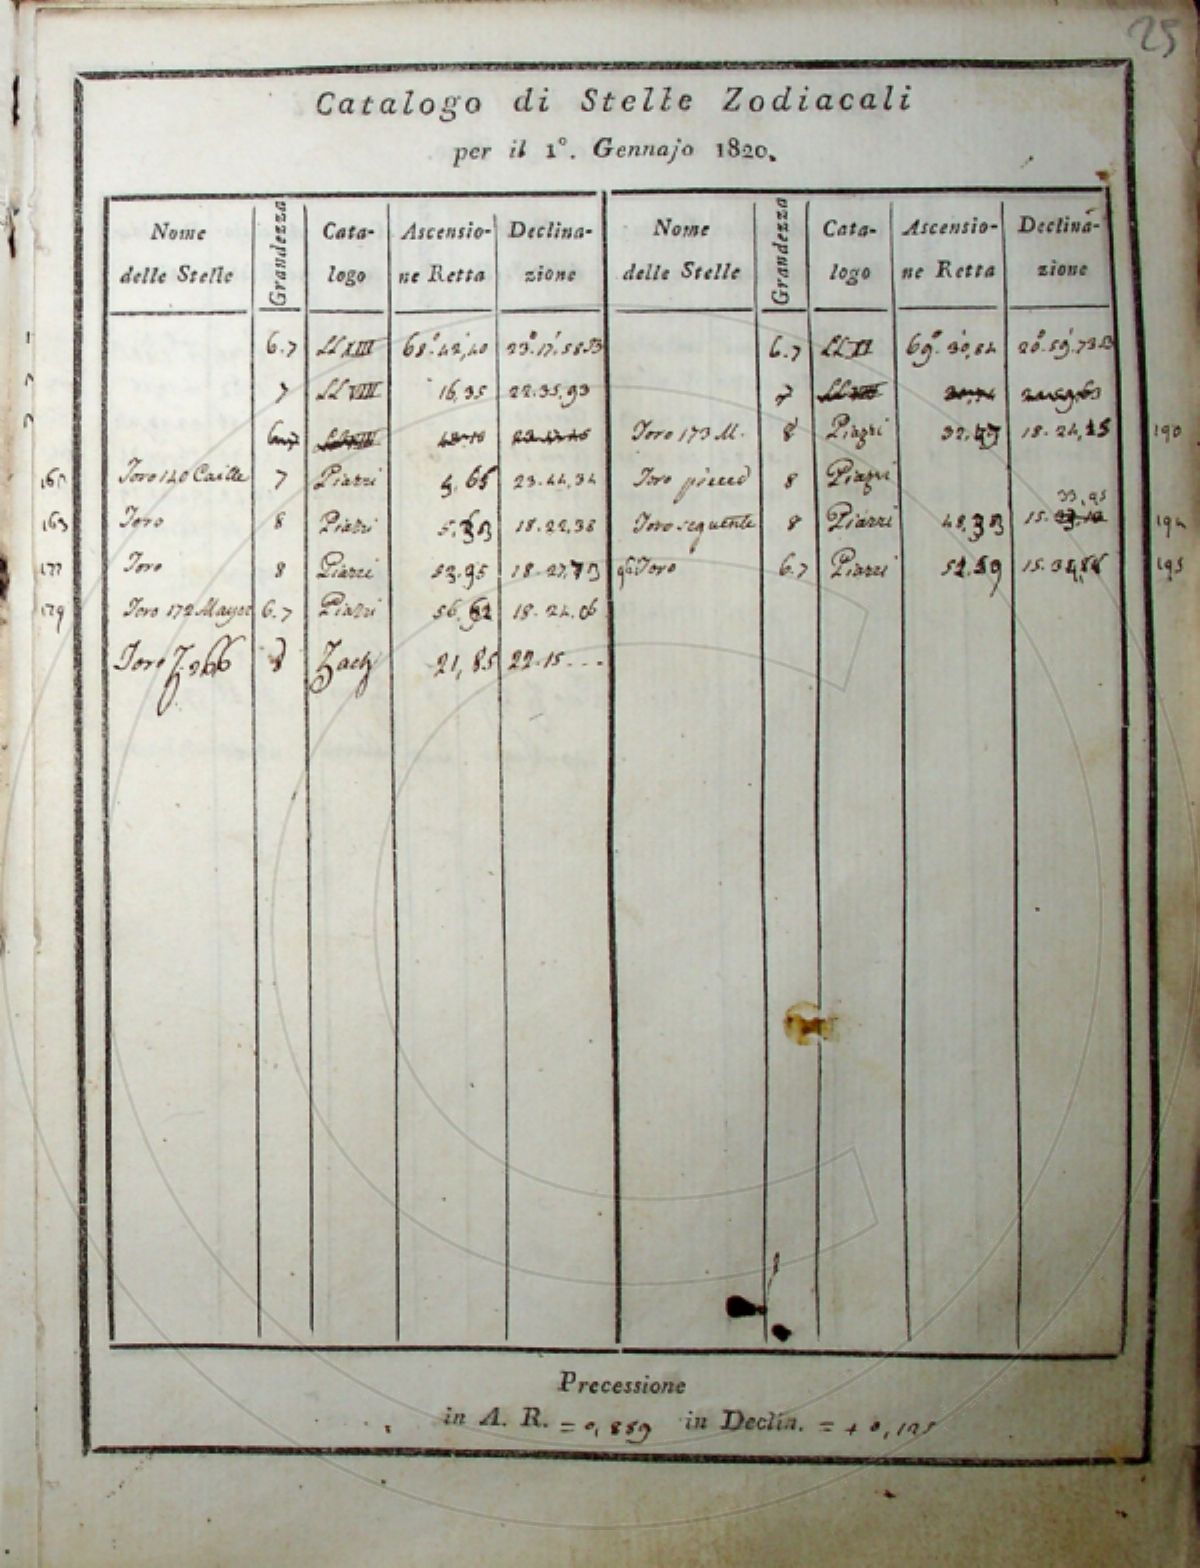 25
Catalogo di Stelle Zodiacali
per il 1°. Gennajo 1820.
Nome delle Stelle Grandezza Cata-logo Ascensio-ne Retta Declina-zione Nome delle Stelle Grandezza Cata-logo Ascensio-ne Retta Declina-zione
6.7 LL XIII 68°.42',40 23°.17',58 B 6.7 LL XI 69°.30',84 20°.59',73 B
7 LL VIII 16,35 22.35,93 7
Toro 173 M. 8 Piazzi 18.24,25 190
Toro 140 Caille 7 Piazzi 5,66 23.44,34 Toro preced 8 Piazzi
33,95
169 Toro 8 Piazzi 18.22,38 Toro seguente 8 Piazzi 48,33 15. 194
177 Toro 8 Piazzi 53,95 18.27,73 96 Toro 6.7 Piazzi 15.34,86 195
179 Toro 172 Mayer 6.7 Piazzi 56,92 18.24,06
Toro Z 266 8 Zach 21,85 22.15...
Precessione
in A. R. = 0,859 in Declin. = + 0,125